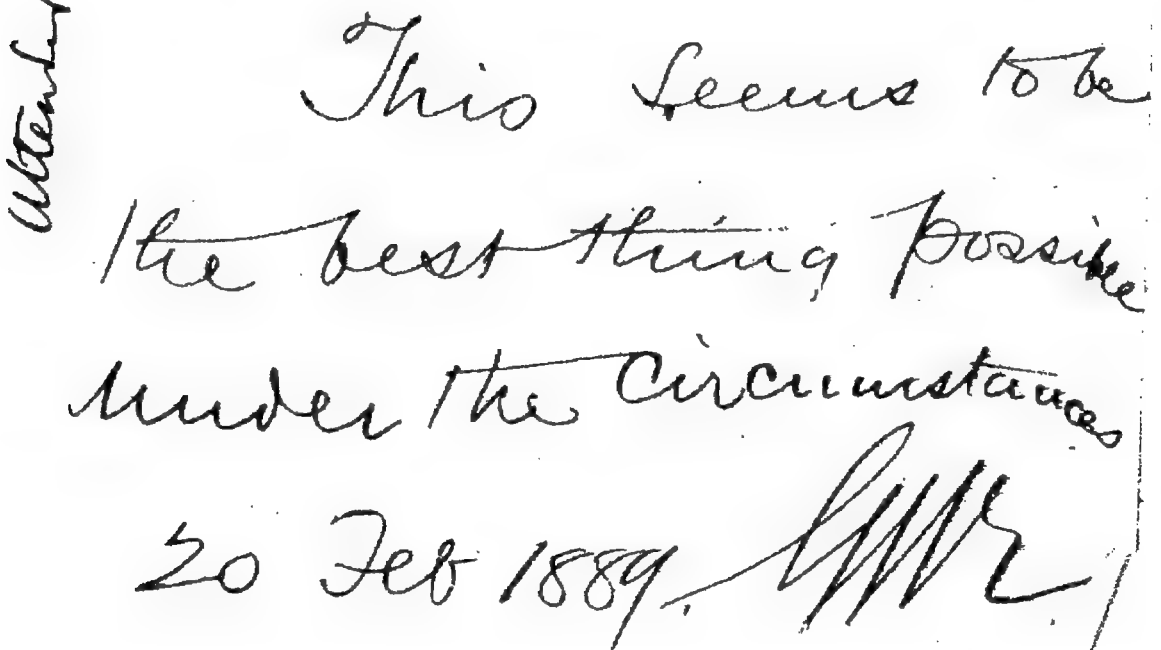 This seems to be
the best thing possible
under the circumstances
20 Feb 1889.